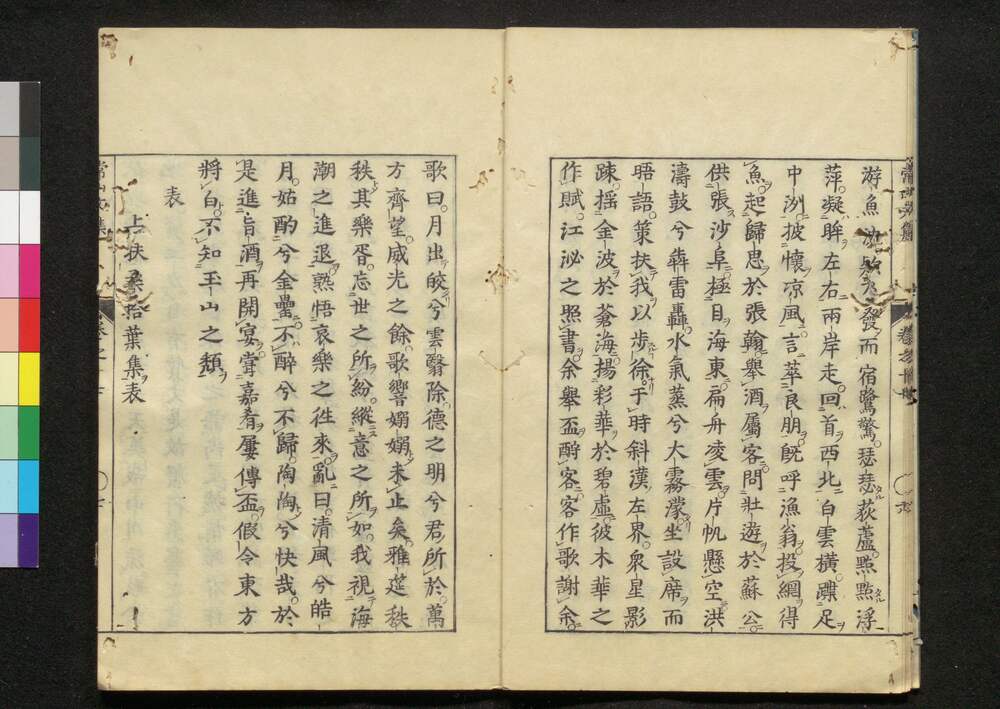 游魚潑發而宿鷺驚瑟瑟荻蘆點點浮
萍凝眸左右兩岸走回首西北白雲橫躡足
中洲披懷凉風言萃良朋旣呼漁翁投網得
魚起歸思於張翰舉酒屬客問壯遊於蘇公
供張沙阜極目海東扁舟凌雲片帆懸空洪
濤鼓兮犇雷轟水氣蒸兮大霧濛坐設席而
晤語策扶我以步徐于時斜漢左界衆星影
疎搖金波於蒼海揚彩華於碧虛彼木華之
作賦江泌之照書余舉盃酹客客作歌謝余
歌曰月出皎兮雲翳除德之明兮君所於萬
方齊望威光之餘歌響嫋嫋未止矣雅莚秩
秩其樂胥忘世之所紛縱意之所如我視海
潮之進退熟悟哀樂之往來亂曰清風兮皓
月姑酌兮金罍不醉兮不歸陶陶兮快哉於
是進旨酒再開宴嘗嘉肴屢傳盃假令東方
將白不知玉山之頽
表
上扶桑拾葉集表